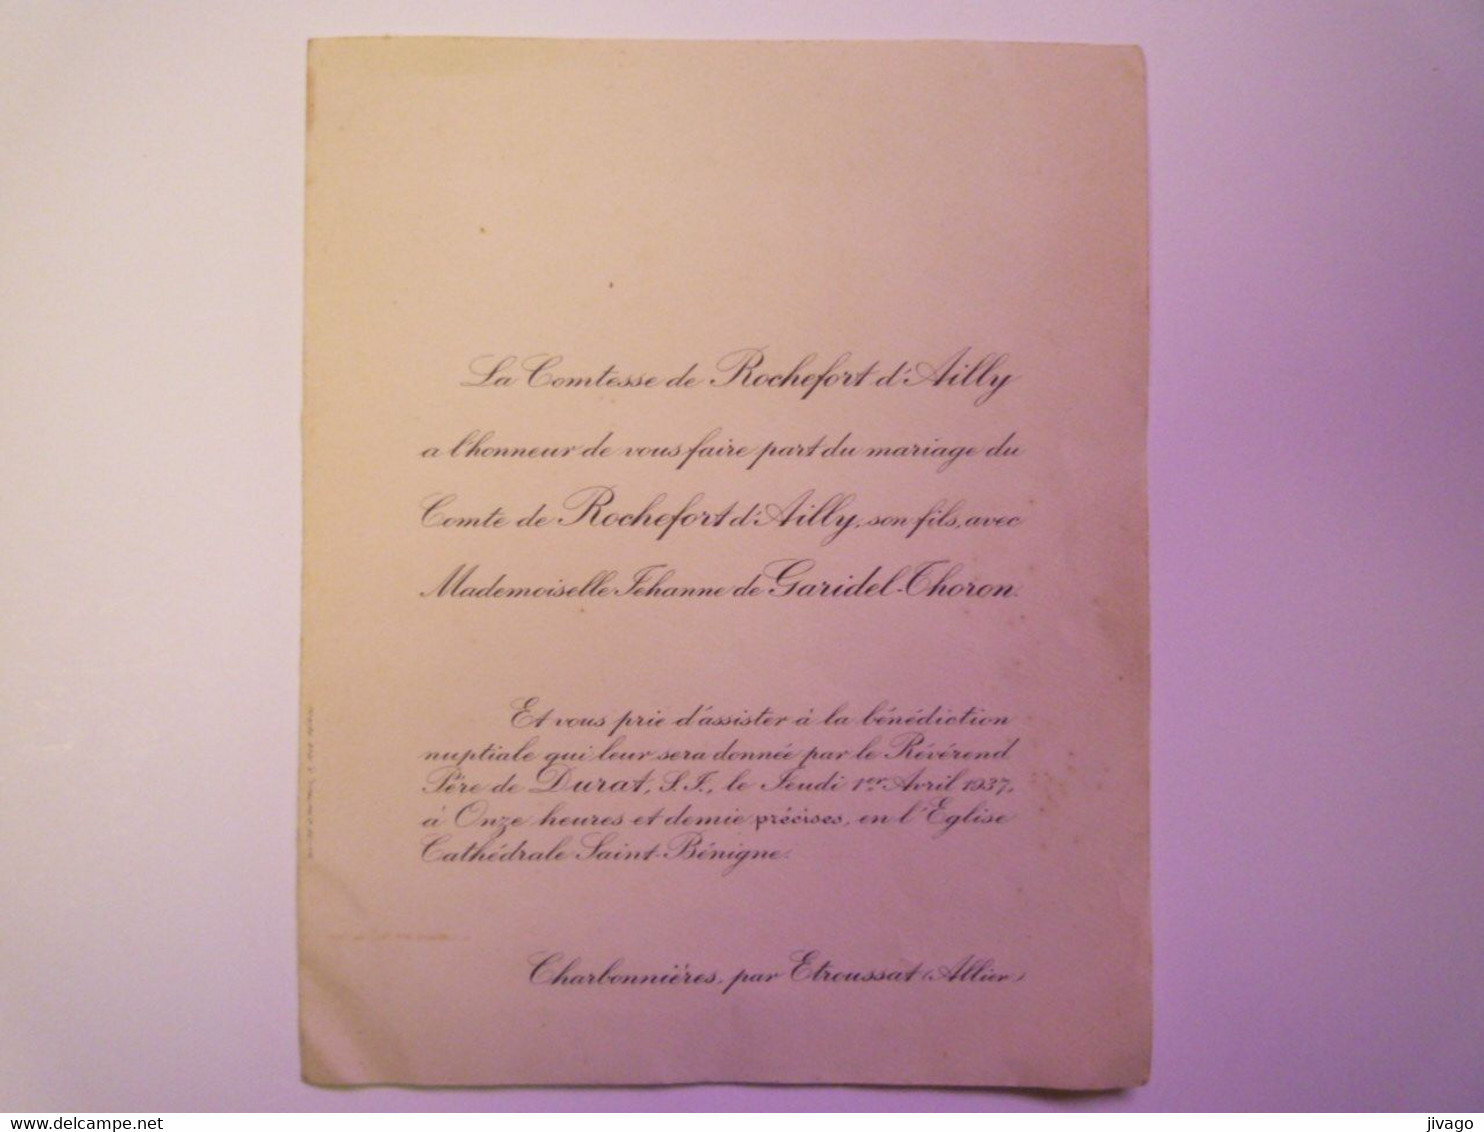 La Comtesse de Rochefort d'Ailly
a l'honneur de vous faire part du mariage du
Comte de Rochefort d'Ailly, son fils, avec
Mademoiselle Jehanne de Garidel-Thoron.
Et vous prie d'assister à la bénédiction
nuptiale qui leur sera donnée par le Révérend
Père de Durat, S.J., le Jeudi 1er Avril 1937,
à Onze heures et demie précises, en l'Eglise
Cathédrale Saint-Bénigne.
Charbonnières, par Etroussat (Allier)
delcampe.net
jivago